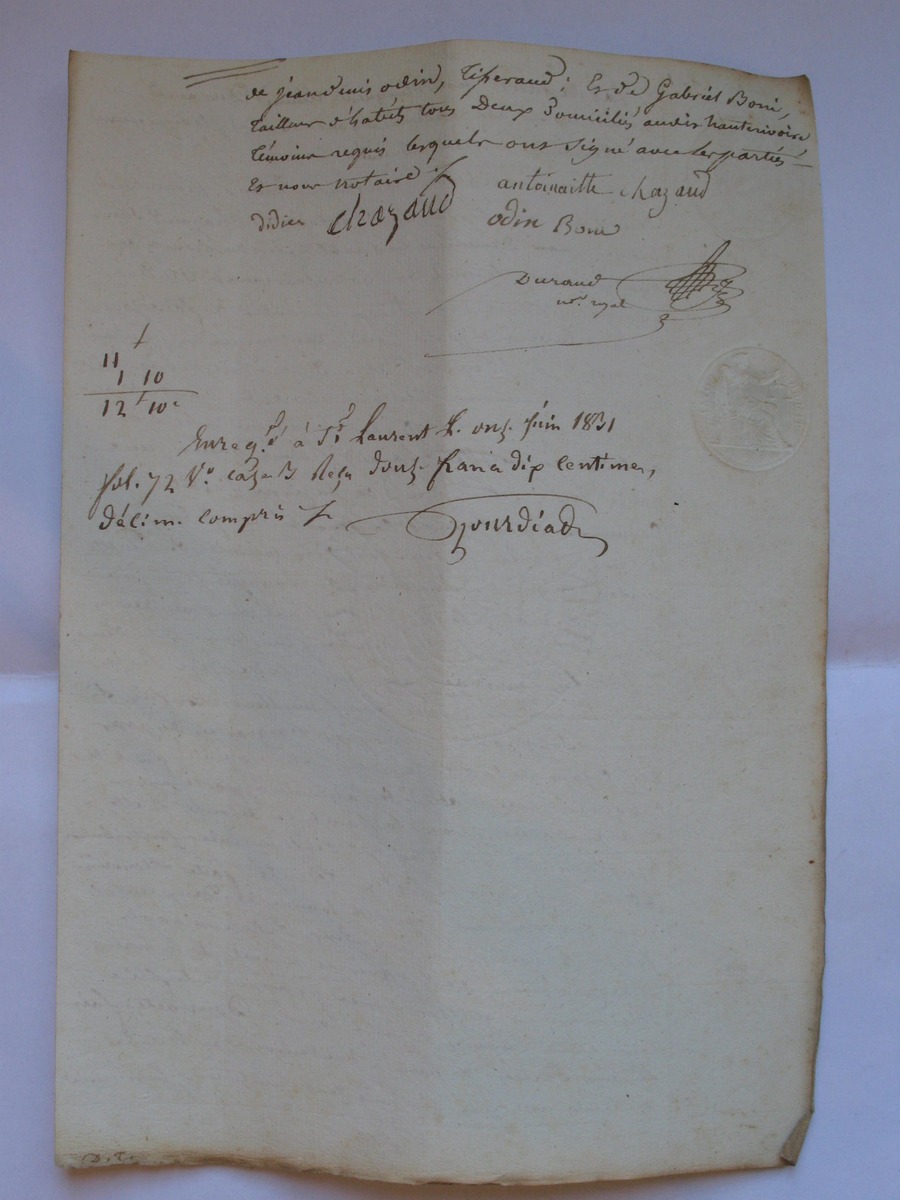 de jeandenis odin, Tisserand ; Et de Gabriel Boni,
tailleur d'habits tous Deux Domiciliés audit hauterivoire
témoins requis lesquels ont signé avec les parties
Et nous notaire ./.
didier chazaud antoinaitte chazaud
odin Boni
Durand
nre. royal
11 f
1 10
12 f 10c
Enregté à St Laurent le onze juin 1831
fol. 72 Vo. case 3 Reçu douze francs dix centimes,
décime compris
Gourdiat
D. T.